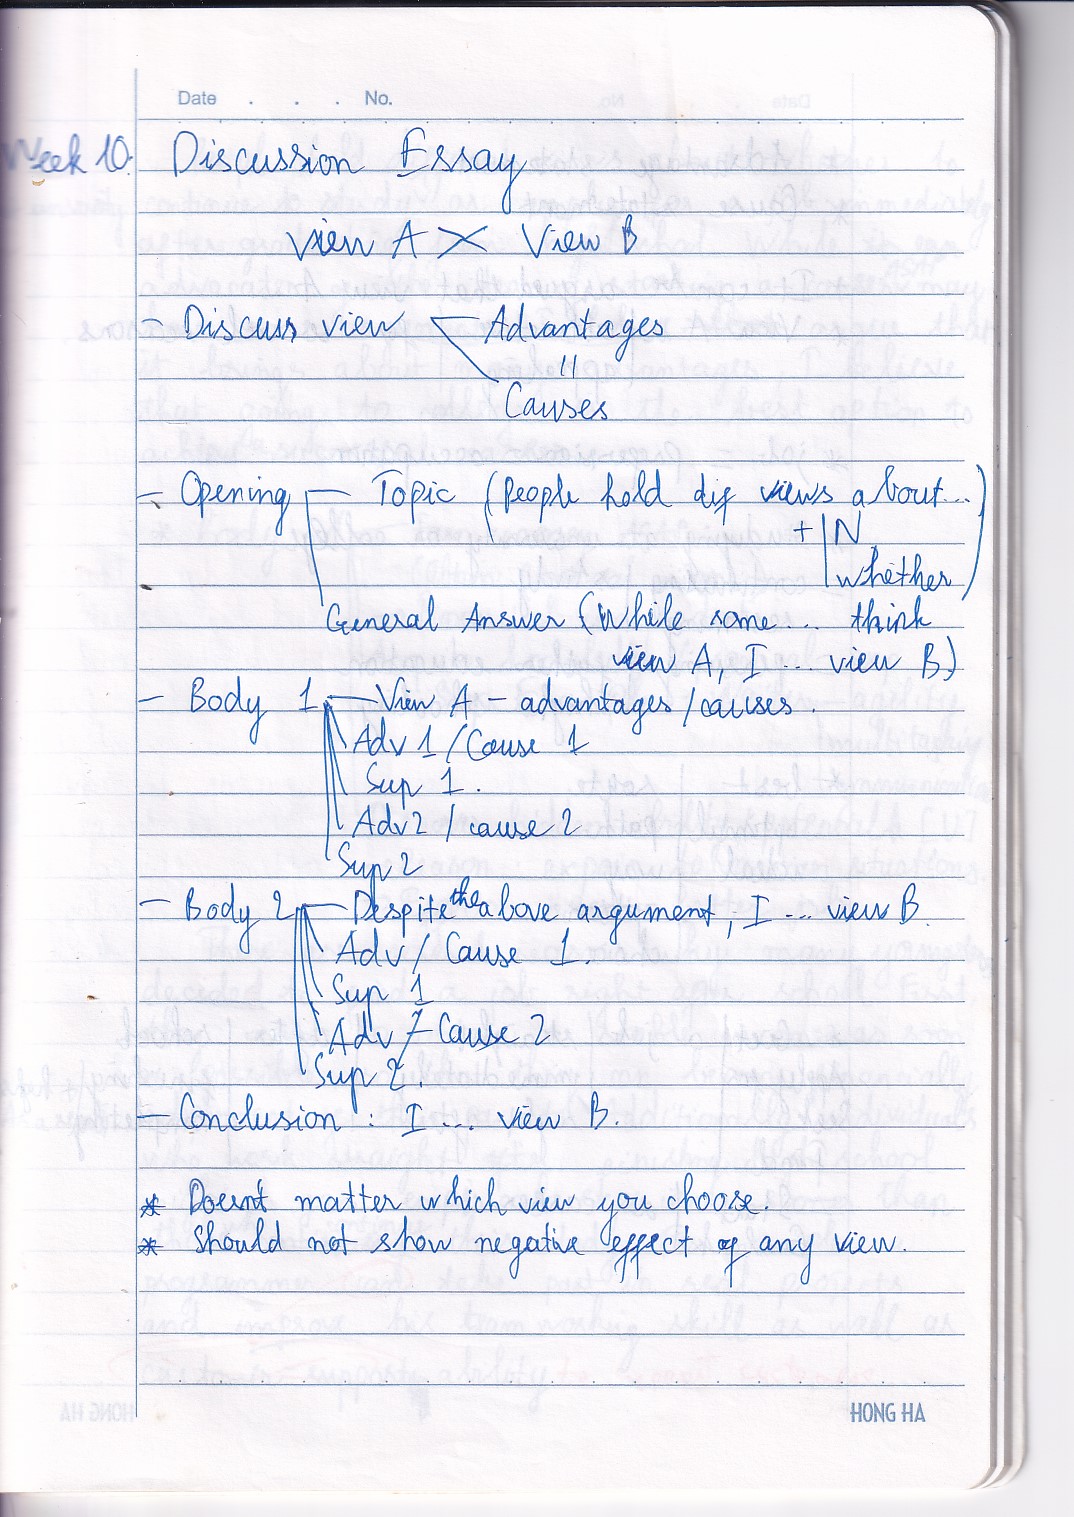 Date . . . No.
Week 10: Discussion Essay
View A × View B
- Discuss view Advantages
=
Causes
- Opening Topic (People hold dif views about...
+ N
whether)
General Answer (While some... think
view A, I... view B)
- Body 1 View A - advantages/causes.
Adv 1 / Cause 1
Sup 1.
Adv 2 / cause 2
Sup 2
- Body 2 Despite the above argument, I... view B
Adv / Cause 1.
Sup 1
Adv / Cause 2
Sup 2.
- Conclusion : I... view B.
* Doesn't matter which view you choose.
* Should not show negative effect of any view.
HONG HA